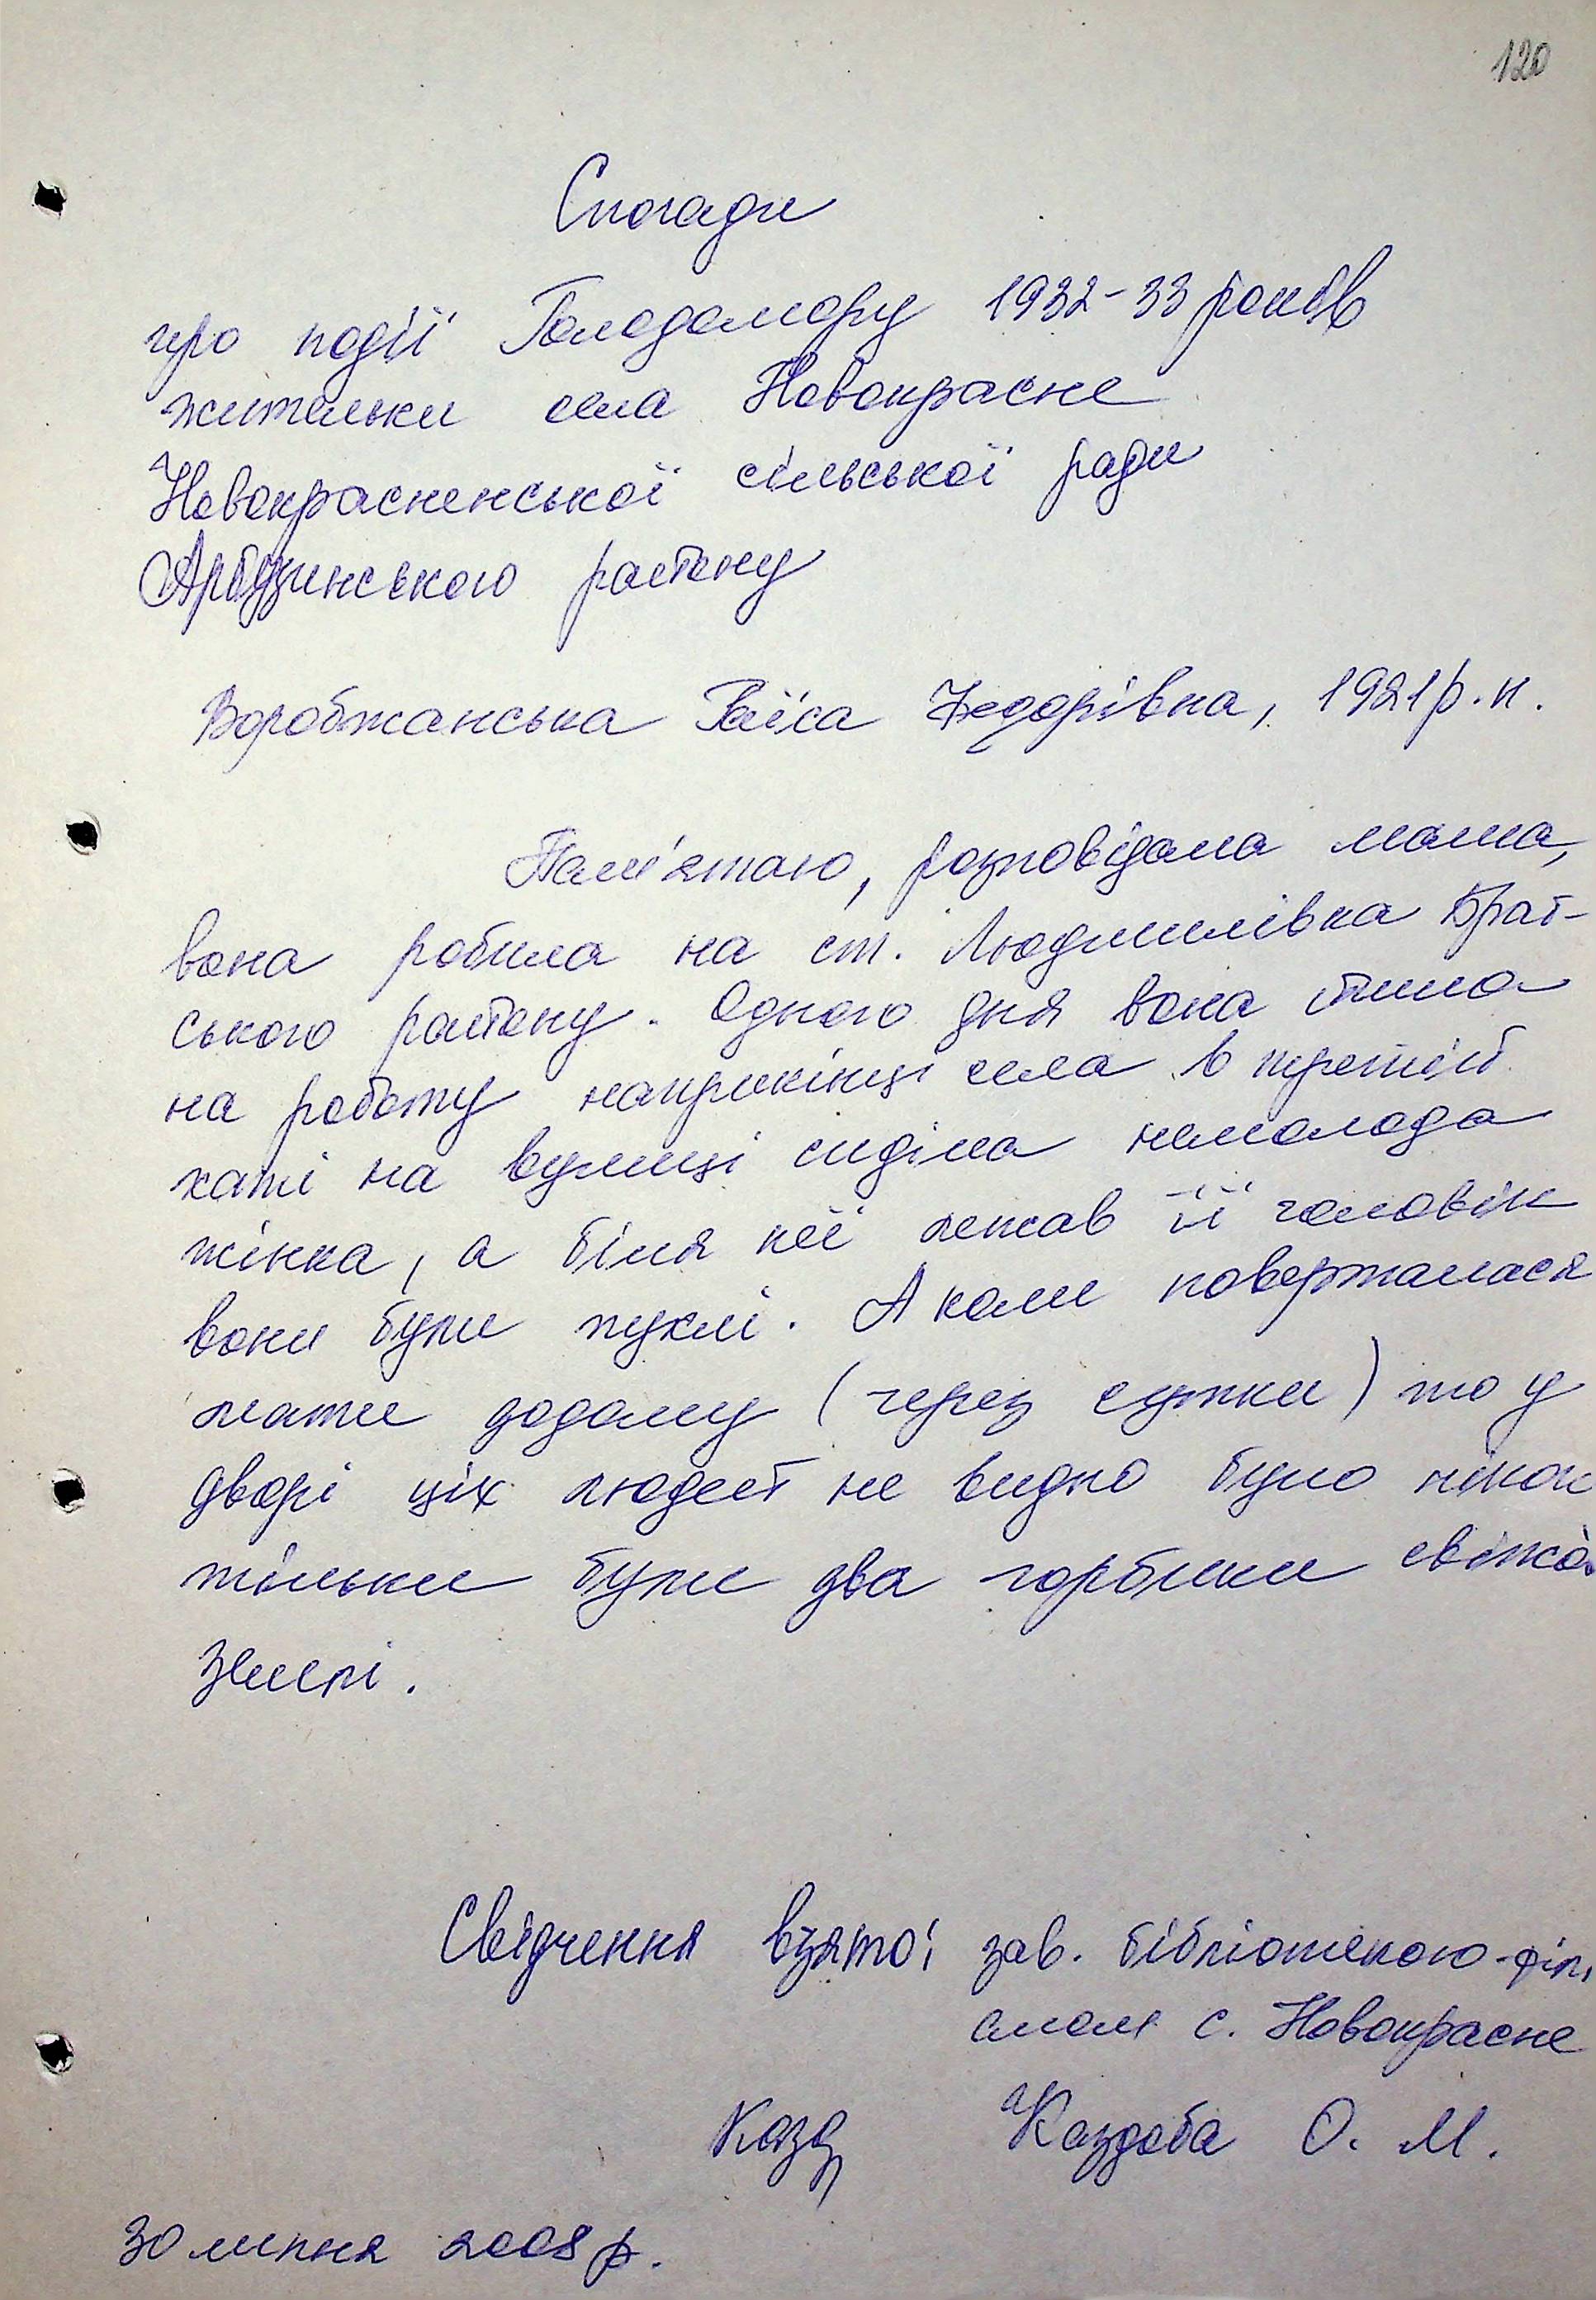 120
Спогади
про події Голодомору 1932-33 років
жительки села Новокрасне
Новокрасненської сільської ради
Арбузинського району
Воробжанська Раїса Федорівна, 1921 р. н.
Пам'ятаю, розповідала мама,
вона робила на ст. Людмилівка Брат-
ського району. Одного дня вона йшла
на роботу наприкінці села в третій
хаті на вулиці сиділа немолода
жінка, а біля неї лежав її чоловік
вони були пухлі. А коли поверталася
мати додому (через сутки) то у
дворі ціх людей не видно було
тільки були два горбики
землі.
Свідчення взято: зав. бібліотекою-філі
алом с. Новокрасне
Козд Каздоба О. М.
30 липня 2008 р.